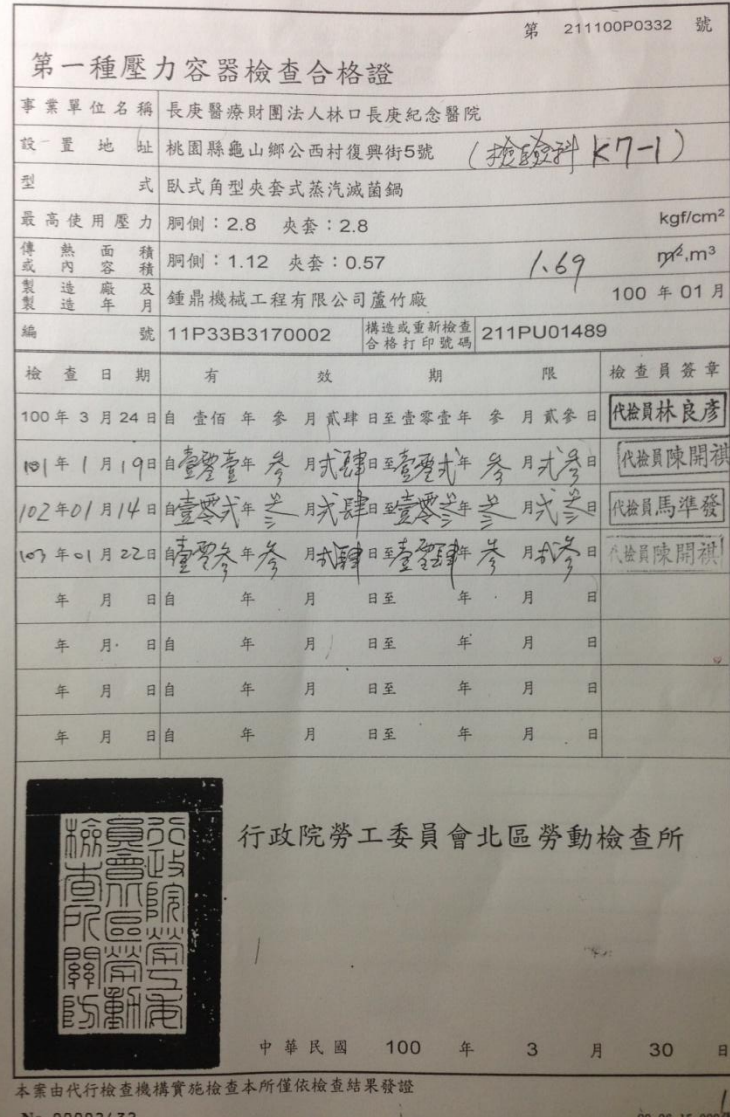 第 211100P0332 號
第一種壓力容器檢查合格證
事業單位名稱 長庚醫療財團法人林口長庚紀念醫院
設置地址 桃園縣龜山鄉公西村復興街5號 (檢驗科 K7-1)
型式 臥式角型夾套式蒸汽滅菌鍋
最高使用壓力 胴側：2.8 夾套：2.8 kgf/cm²
傳熱面積或內容積 胴側：1.12 夾套：0.57 1.69 m²,m³
製造廠及製造年月 鍾鼎機械工程有限公司蘆竹廠 100 年 01 月
編號 11P33B3170002 構造或重新檢查合格打印號碼 211PU01489
檢查日期 有效期限 檢查員簽章
100 年 3 月 24 日 自 壹佰 年 參 月 貳肆 日至 壹零壹 年 參 月 貳參 日 代檢員林良彥
101 年 1 月 19 日 自 壹零壹 年 參 月 弍肆 日至 壹零弍 年 參 月 弍參 日 代檢員陳開祺
102 年 01 月 14 日 自 壹零弍 年 叁 月 弍肆 日至 壹零叁 年 叁 月 弍叁 日 代檢員馬準發
103 年 01 月 22 日 自 壹零參 年 參 月 弍肆 日至 壹零肆 年 參 月 弍參 日 代檢員陳開祺
年 月 日 自 年 月 日至 年 月 日
年 月 日 自 年 月 日至 年 月 日
年 月 日 自 年 月 日至 年 月 日
年 月 日 自 年 月 日至 年 月 日
行政院勞工委
員會北區勞動
檢查所關防
行政院勞工委員會北區勞動檢查所
中華民國 100 年 3 月 30 日
本案由代行檢查機構實施檢查本所僅依檢查結果發證